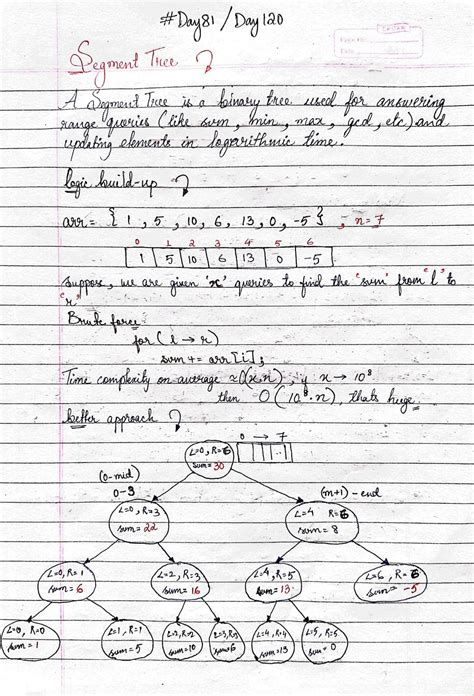 #Day81 / Day120
Segment Tree
A Segment Tree is a binary tree used for answering
range queries (like sum, min, max, gcd, etc) and
updating elements in logarithmic time.
logic build-up
arr = { 1, 5, 10, 6, 13, 0, -5 }, n=7
0 1 2 3 4 5 6
1 5 10 6 13 0 -5
suppose, we are given 'x' queries to find the 'sum' from "l" to
"r"
Brute force
for (l → r)
sum += arr[i];
Time complexity on average ≈ O(x.n), if x → 10⁸
then O(10⁸.n), thats huge
better approach
0 → 7
L=0, R=6
sum=30
(0-mid)
0-3
(m+1) - end
L=0, R=3
sum=22
L=4 R=6
sum=8
L=0, R=1
sum=6
L=2, R=3
sum=16
L=4, R=5
sum=13
L=6, R=6
sum=-5
L=0, R=0
sum=1
L=1, R=1
sum=5
L=2, R=2
sum=10
L=3, R=3
sum=6
L=4, R=4
sum=13
L=5, R=5
sum=0